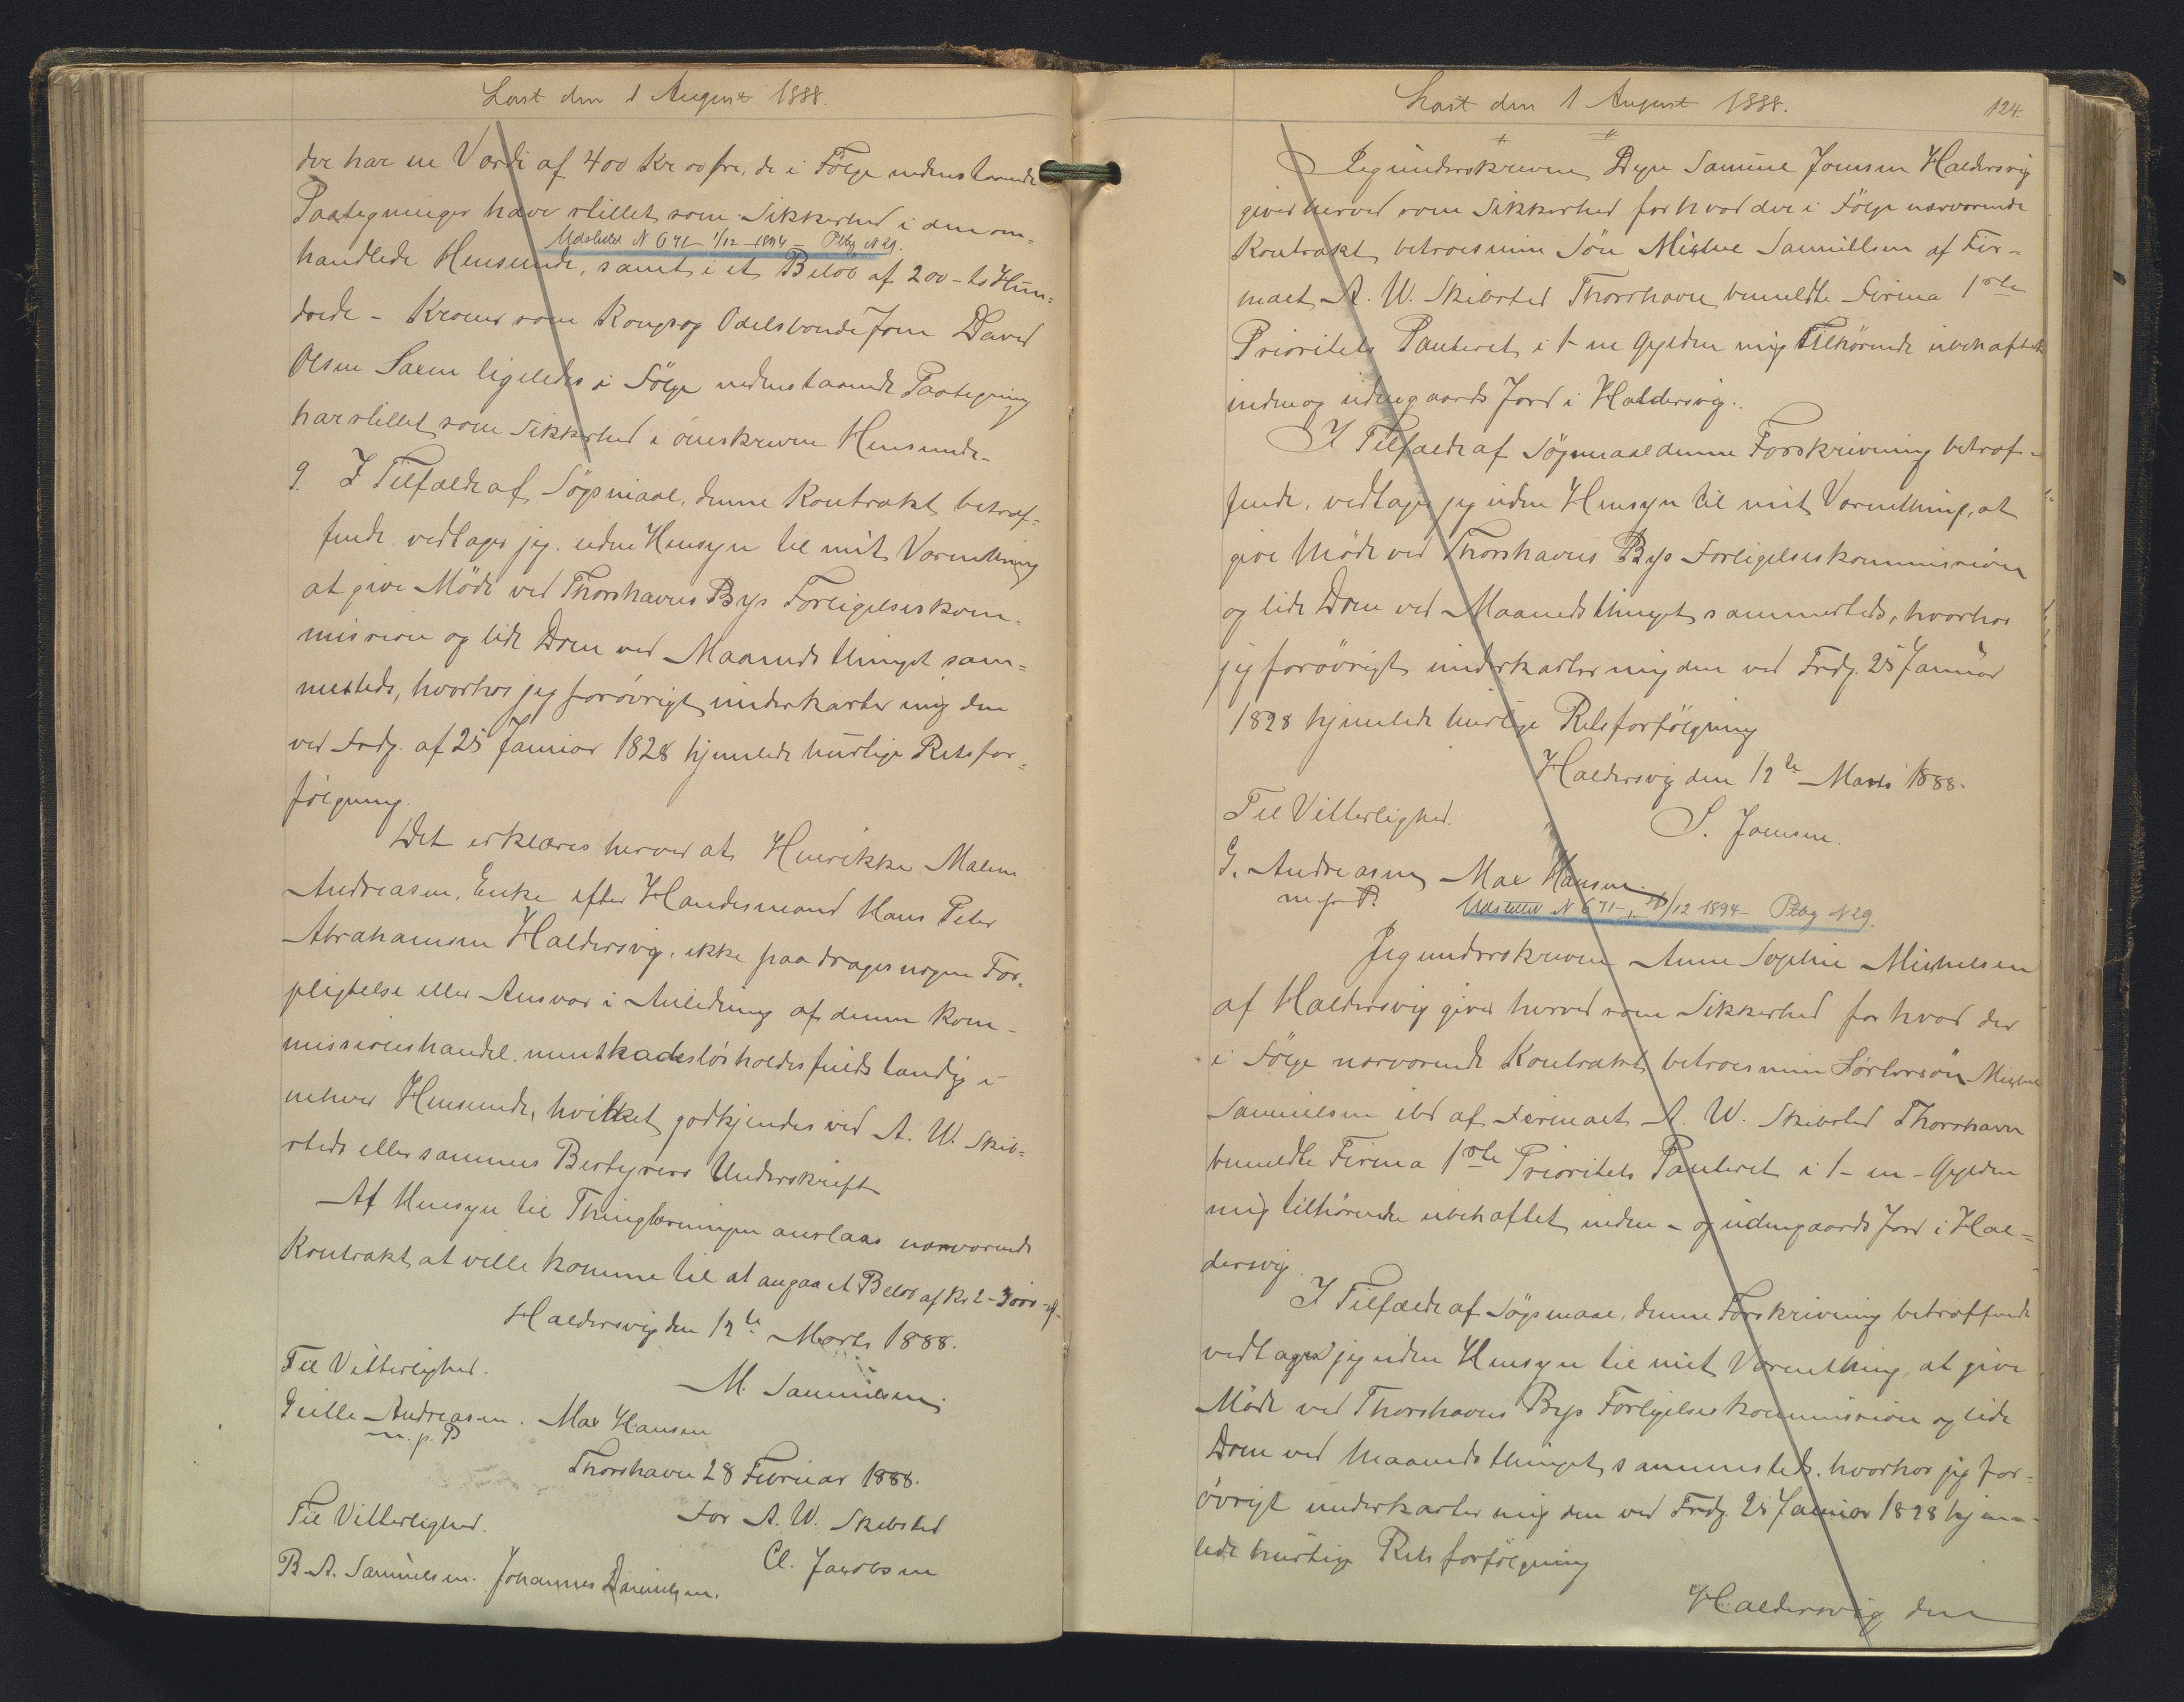 Læst den 1 August 1888.
der har en Værdi af 400 Kr 00 Øre, de i Følge nedenstaaende
Paategninger have stillet som Sikkerhed i den om-
Udslettet N 671 1/12 1894 – Ptbg N 29.
handlede Henseende, samt i et Beløb af 200 – to Hun-
drede – Kroner som Kongs og Odelsbonde Joen David
Olsen Saxen ligeledes i Følge nedenstaaende Paategning
har stillet som Sikkerhed i ommeskreven Henseende.
9. I Tilfælde af Søgsmaal, denne Kontrakt betræf-
fende vedtager jeg, uden Hensyn til mit Værnething
at give Møde ved Thorshavns Bys Forligelseskom-
mission og lide Dom ved Maanedsthinget sam-
mesteds, hvorhos jeg forøvrigt underkaster mig den
ved Frdg. af 25 Januar 1828 hjemlede hurtige Retsfor-
følgning.
Det erklæres herved at Henrikke Malene
Andreasen, Enke efter Handelsmand Hans Peter
Abrahamsen Haldersvig, ikke paadrages nogen For-
pligtelse eller Ansvar i Anledning af denne Kom-
missionshandel, men skadesløsholdes fuldstændig i
enhver Henseende, hvilket godkjendes ved A. W. Skib-
steds eller sammes Bestyrers Underskrift
Af Hensyn til Thinglæsningen anslaas nærværende
Kontrakt at ville komme til at angaa et Beløb af Kr 2-3000
Haldersvig den 12te Marts 1888.
Til Vitterlighed.
M. Samuelsen
Andreasen. Max Hansen
m. p. P
Thorshavn 28 Februar 1888.
Til Vitterlighed.
For A. W. Skibsted
Cl. Jacobsen
B. A. Samuelsen. Johannes Danielsen.
Læst den 1 August 1888.
124.
Jeg underskreven Samuel Joensen Haldersvig
giver herved som Sikkerhed for hvad der i Følge nærværende
Kontrakt betroes min Søn Michael Samuelsen af Fir-
maet A. W. Skibsted Thorshavn bemeldte Firma 1ste
Prioritets Panteret i 1 – en Gylden mig tilhørende ubehæftet
inden og udengaards Jord i Haldersvig.
I Tilfælde af Søgsmaal denne Forskrivning betræf-
fende, vedtager jeg uden Hensyn til mit Værnething, at
give Møde ved Thorshavns Bys Forligelseskommission
og lide Dom ved Maanedsthinget sammesteds, hvorhos
jeg forøvrigt underkaster mig den ved Frdg. 25 Januar
1828 hjemlede hurtige Retsforfølgning
Haldersvig den 12te Marts 1888.
Til Vitterlighed.
S. Joensen.
G. Andreasen Max Hansen
m. p. P.
Udslettet N 671 – 1/12 1894 – Ptbg N 29.
Jeg underskreven Anne Sophie Michelsen
af Haldersvig giver herved som Sikkerhed for hvad der
i Følge nærværende Kontrakt betroes min Søstersøn Michael
Samuelsen ibd af Firmaet A. W. Skibsted Thorshavn
bemeldte Firma 1ste Prioritets Panteret i 1 – en – Gylden
mig tilhørende ubehæftet inden – og udengaards Jord i Hal-
dersvig.
I Tilfælde af Søgsmaal, denne Forskrivning betræffende
vedtager jeg uden Hensyn til mit Værnething, at give
Møde ved Thorshavns Bys Forligelseskommission og lide
Dom ved Maanedsthinget sammesteds, hvorhos jeg for-
øvrigt underkaster mig den ved Frdg. 25 Januar 1828 hjem-
lede hurtige Retsforfølgning
Haldersvig den